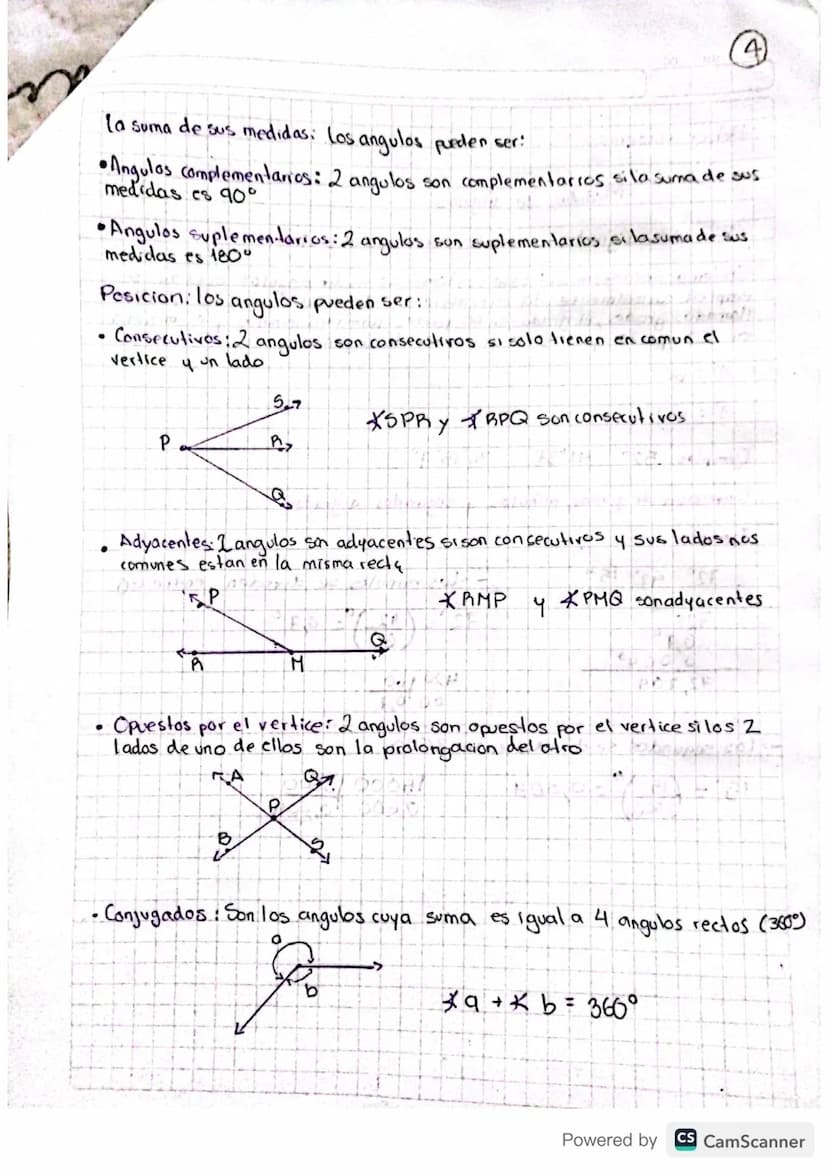 4
la suma de sus medidas: los angulos pueden ser:
•Angulos complementarios: 2 angulos son complementarios si la suma de sus
medidas es 90°
•Angulos suplementarios: 2 angulos son suplementarios si la suma de sus
medidas es 180°
Posicion: los angulos pueden ser:
• Consecutivos: 2 angulos son consecutivos si solo tienen en comun el
vertice y un lado
S
P
R
∡SPR y ∡RPQ son consecutivos
Q
• Adyacentes: 2 angulos son adyacentes si son consecutivos y sus lados nos
comunes estan en la misma recta
P
∡RMP y ∡PMQ son adyacentes
Q
R
M
• Opuestos por el vertice: 2 angulos son opuestos por el vertice si los 2
lados de uno de ellos son la prolongacion del otro
A
Q
P
B
S
• Conjugados: Son los angulos cuya suma es igual a 4 angulos rectos (360°)
a
b
∡a + ∡ b = 360°
Powered by CS CamScanner